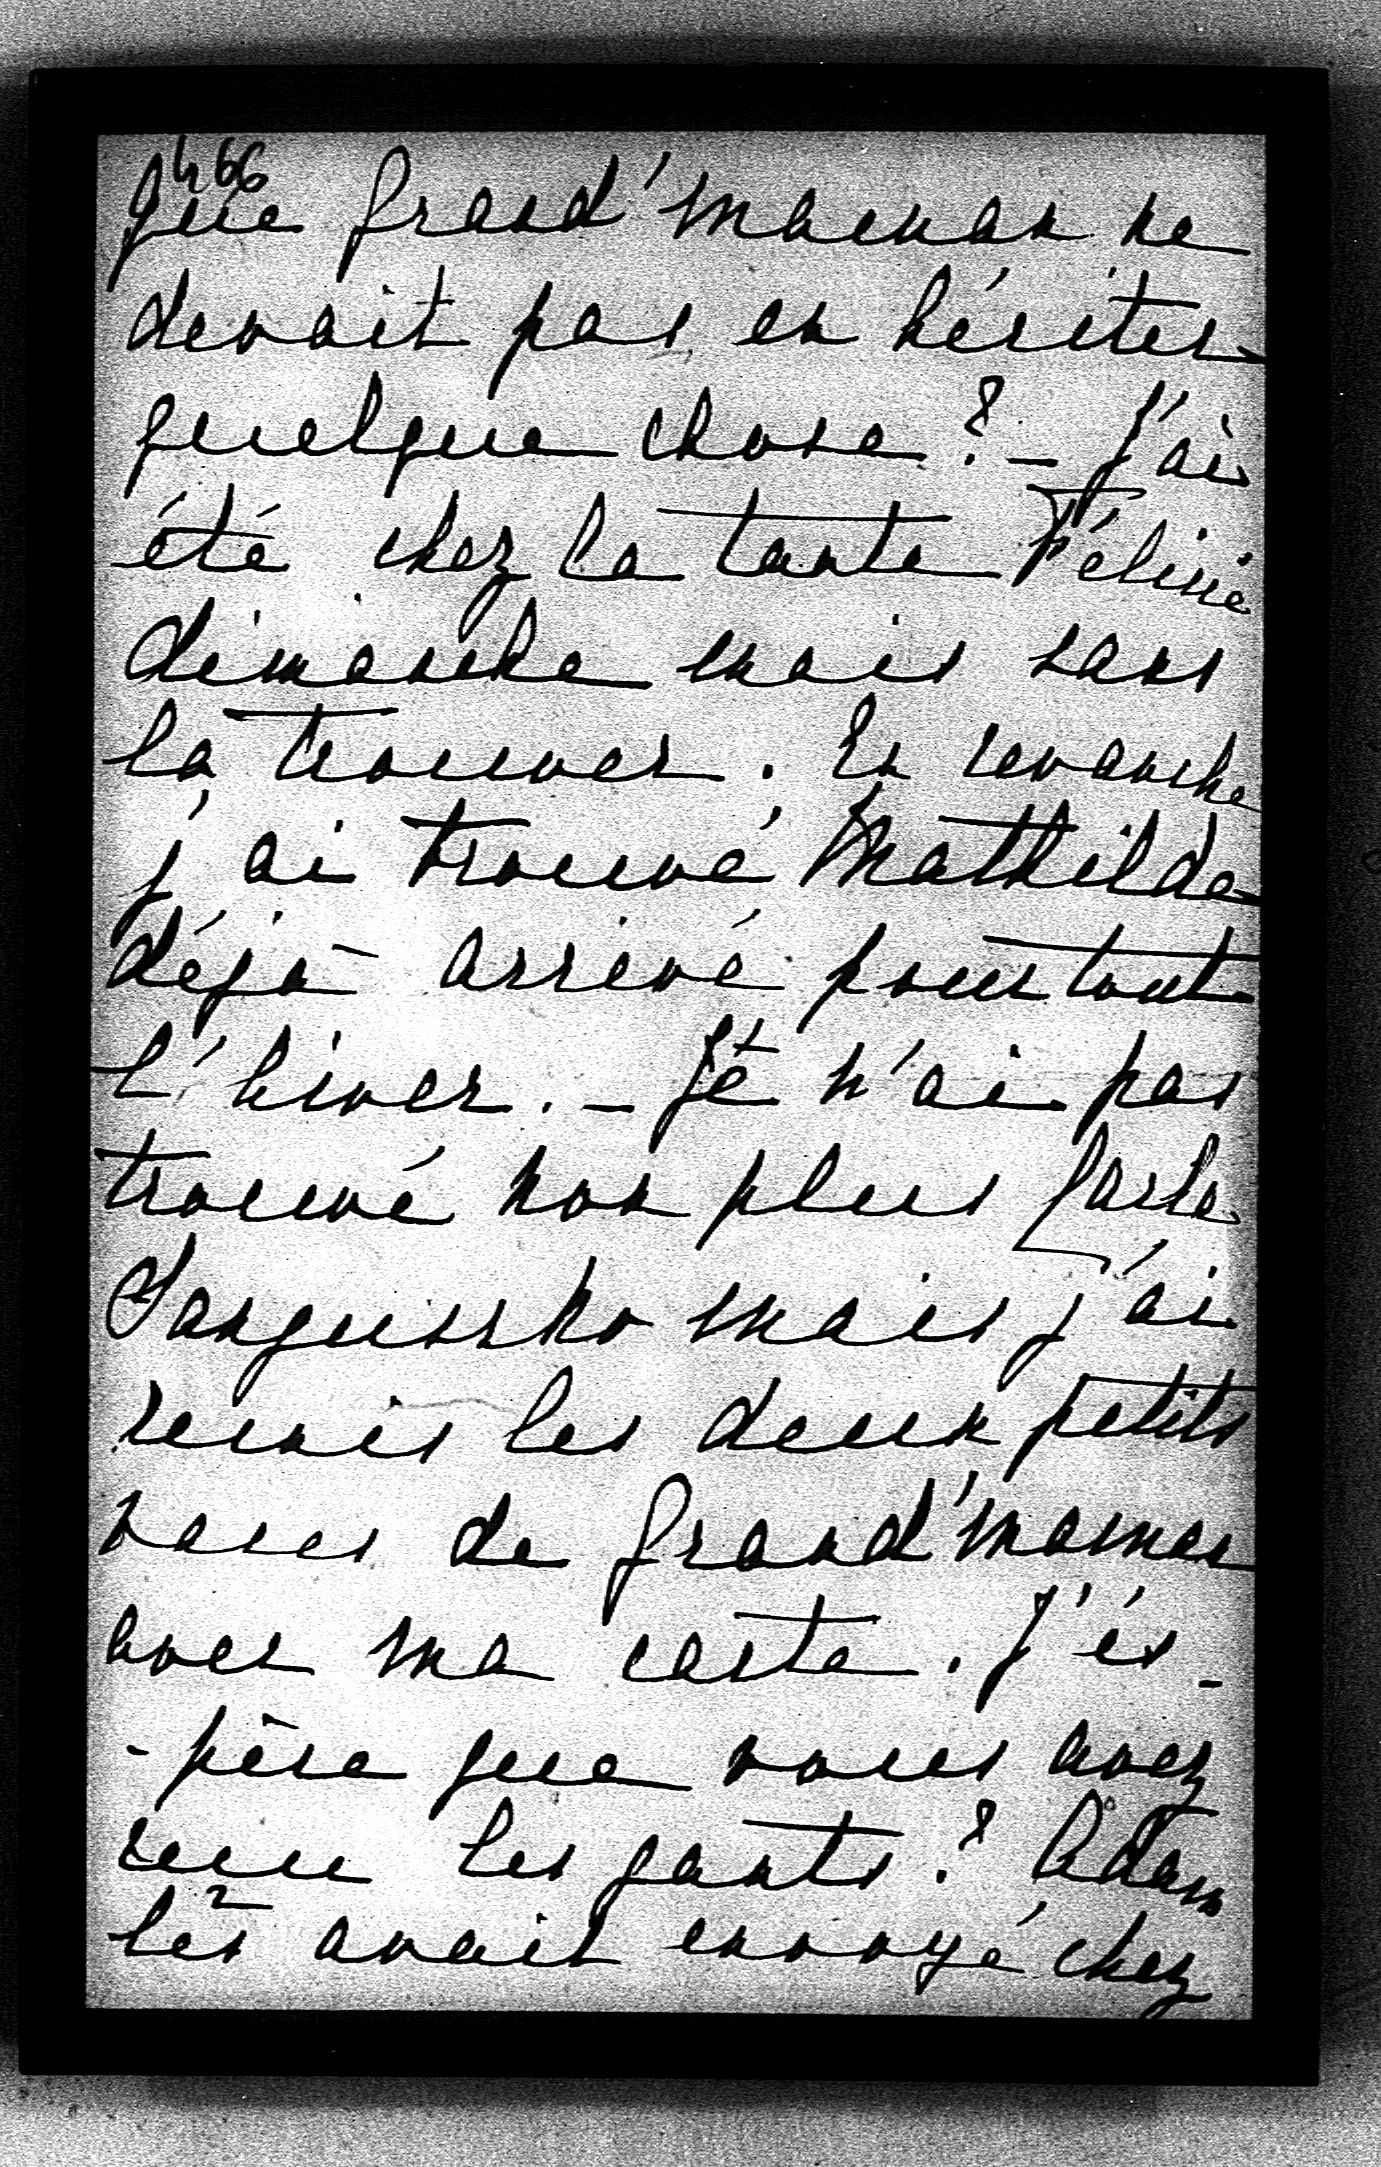 466
que Grand'maman ne
devait pas en hériter
quelque chose ? _ J'ai
été chez la tante Féline
dimanche mais sans
la trouver. En revanche
j'ai trouvé Mathilde
déjà arrivé pour tout
l'hiver. _ Je n'ai pas
trouvé non plus
Sanguszko mais j'ai
remis les deux petits
vases de Grand'maman
avec ma carte. J'es-
-père que vous avez
reçu les gants ? Adam
les avait envoyé chez